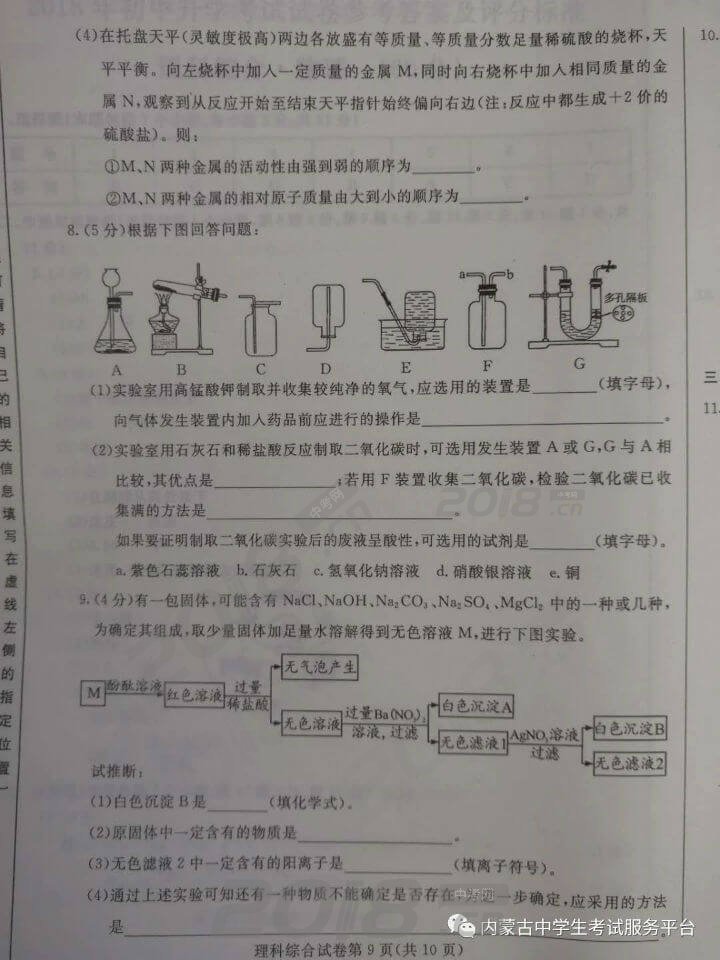 (4)在托盘天平(灵敏度极高)两边各放盛有等质量、等质量分数足量稀硫酸的烧杯,天
平平衡。向左烧杯中加入一定质量的金属 M,同时向右烧杯中加入相同质量的金
属 N,观察到从反应开始至结束天平指针始终偏向右边(注:反应中都生成+2 价的
硫酸盐)。则:
①M、N 两种金属的活动性由强到弱的顺序为________。
②M、N 两种金属的相对原子质量由大到小的顺序为________。
8.(5 分)根据下图回答问题:
a b
多孔隔板
A B C D E F G
(1)实验室用高锰酸钾制取并收集较纯净的氧气,应选用的装置是________(填字母),
向气体发生装置内加入药品前应进行的操作是________。
(2)实验室用石灰石和稀盐酸反应制取二氧化碳时,可选用发生装置 A 或 G,G 与 A 相
比较,其优点是________;若用 F 装置收集二氧化碳,检验二氧化碳已收
集满的方法是________。
如果要证明制取二氧化碳实验后的废液呈酸性,可选用的试剂是________(填字母)。
a. 紫色石蕊溶液 b. 石灰石 c. 氢氧化钠溶液 d. 硝酸银溶液 e. 铜
9.(4 分)有一包固体,可能含有 NaCl、NaOH、Na₂CO₃、Na₂SO₄、MgCl₂ 中的一种或几种,
为确定其组成,取少量固体加足量水溶解得到无色溶液 M,进行下图实验。
M 酚酞溶液 红色溶液 过量稀盐酸 无气泡产生
无色溶液 过量Ba(NO₃)₂溶液,过滤 白色沉淀A
无色滤液1 AgNO₃溶液 过滤 白色沉淀B
无色滤液2
试推断:
(1)白色沉淀 B 是________(填化学式)。
(2)原固体中一定含有的物质是________。
(3)无色滤液 2 中一定含有的阳离子是________(填离子符号)。
(4)通过上述实验可知还有一种物质不能确定是否存在 一步确定,应采用的方法
是________。
理科综合试卷第 9 页(共 10 页)
10.
三
11.
相
关
信
息
填
写
在
虚
线
左
侧
的
指
定
位
置
中考网
2018
.cn
内蒙古中学生考试服务平台